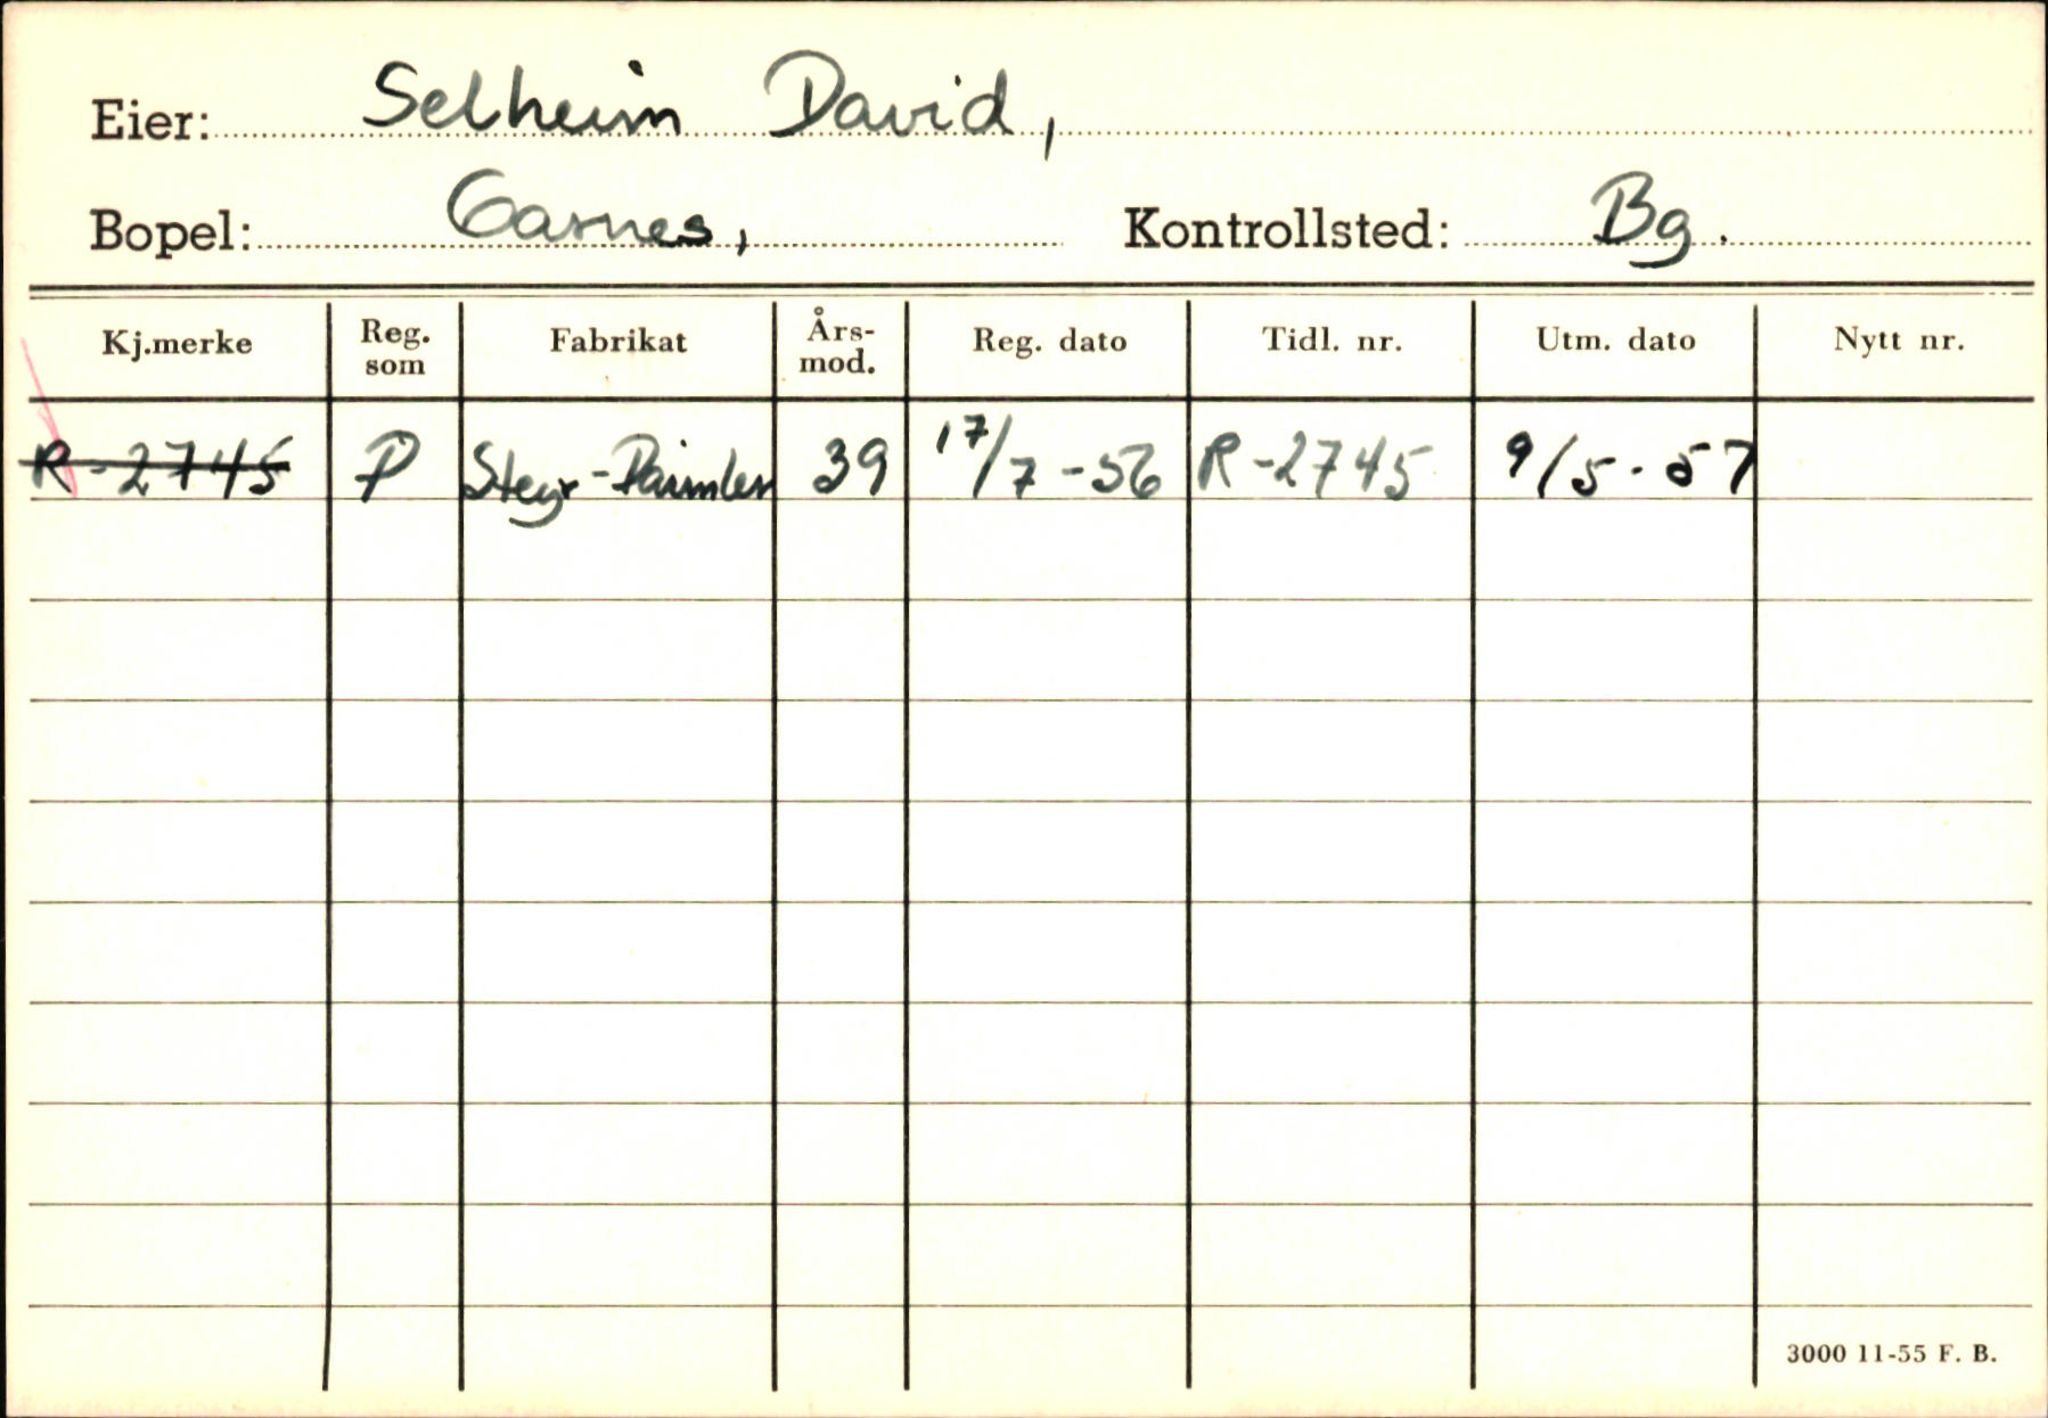 Eier: Selheim David,
Bopel: Garnes, Kontrollsted: Bg.
Kj.merke Reg. som Fabrikat Års-mod. Reg. dato Tidl. nr. Utm. dato Nytt nr.
R-2745 P Steyr-Daimler 39 17/7-56 R-2745 9/5-57
3000 11-55 F. B.